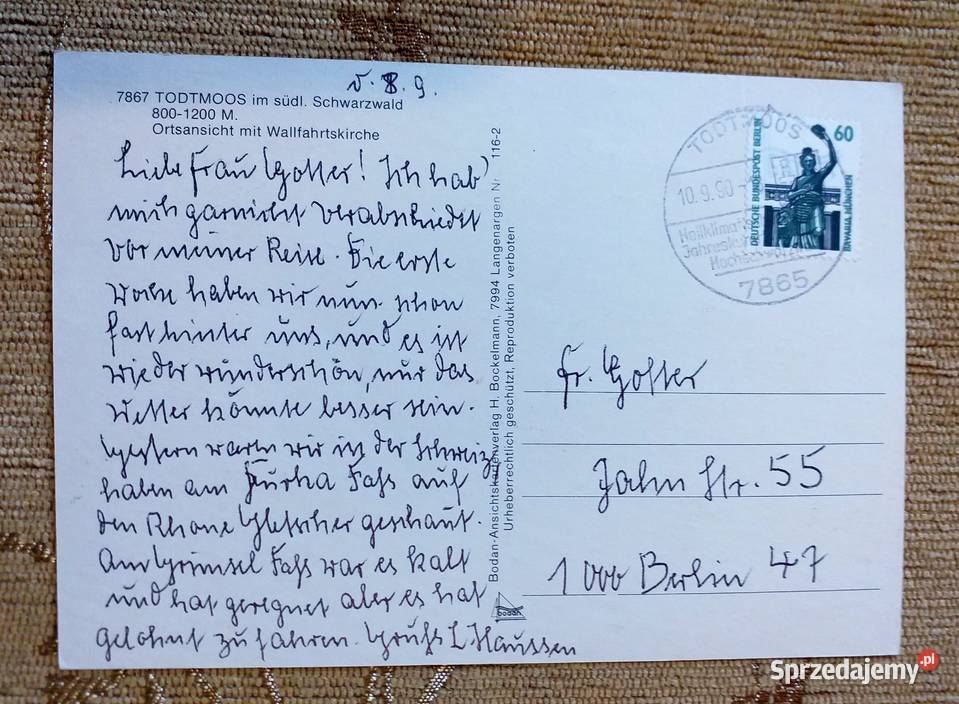 v. 8. 9.
7867 TODTMOOS im südl. Schwarzwald
800-1200 M.
Ortsansicht mit Wallfahrtskirche
Liebe Frau Golter! Ich hab'
mich garnicht verabschiedet
vor meiner Reise. Die erste
Woche haben wir nun schon
fast hinter uns, und es ist
wieder wunderschön, nur das
Wetter könnte besser sein.
Gestern waren wir in der Schweiz,
haben am Furka Paß auf
den Rhone Gletscher geschaut.
Am Grimsel Paß war es kalt
und hat geregnet aber es hat
gelohnt zu fahren. Gruß L. Haussen
Bodan-Ansichtskartenverlag H. Bockelmann, 7994 Langenargen Nr. 116-2
Urheberrechtlich geschützt, Reproduktion verboten
bodan
TODTMOOS
10.9.90
Heilklimat
Jahreskur
Hoch
7865
60
DEUTSCHE BUNDESPOST BERLIN
BAVARIA MÜNCHEN
Fr. Golter
Jahn Str. 55
1000 Berlin 47
Sprzedajemy.pl